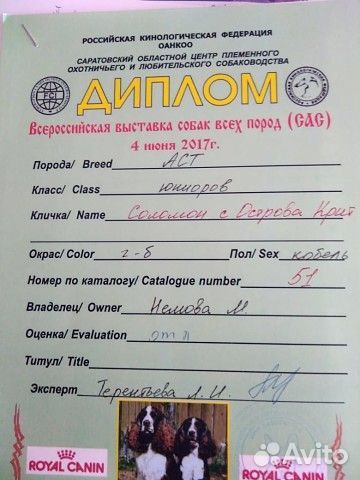 РОССИЙСКАЯ КИНОЛОГИЧЕСКАЯ ФЕДЕРАЦИЯ
ОАНКОО
САРАТОВСКИЙ ОБЛАСТНОЙ ЦЕНТР ПЛЕМЕННОГО
ОХОТНИЧЬЕГО И ЛЮБИТЕЛЬСКОГО СОБАКОВОДСТВА
ДИПЛОМ
Всероссийская выставка собак всех пород (САС)
4 июня 2017г.
Порода/ Breed АСТ
Класс/ Class юниоров
Кличка/ Name Соломон с Острова Крит
Окрас/ Color г-б Пол/ Sex кобель
Номер по каталогу/ Catalogue number 51
Владелец/ Owner Немова М.
Оценка/ Evaluation отл
Титул/ Title
Эксперт Терентьева Л.И.
ROYAL CANIN ROYAL CANIN
Avito